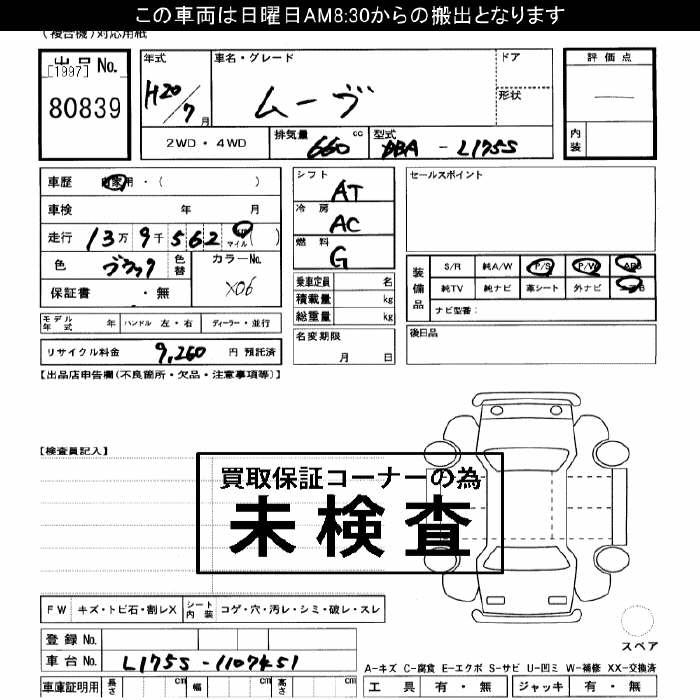 この車両は日曜日AM8:30からの搬出となります
(複合機)対応用紙
出品No.
[1997]
80839
年式
H20/7月
車名・グレード
ムーヴ
ドア
形状
評価点
内装
2WD・4WD
排気量
660 cc
型式
DBA - L175S
車歴 自家用・( )
車検 年 月
走行 13万9千562 マイル( )
色 ブラック
色替
カラーNo.
X06
保証書 ・無
シフト
AT
冷房
AC
燃料
G
セールスポイント
装備品
S/R 純A/W P/S P/W ABS
純TV 純ナビ 革シート 外ナビ
ナビ型番:
乗車定員 名
積載量 kg
総重量 kg
モデル年式 年 ハンドル 左・右 ディーラー・並行
名変期限
月 日
後日品
リサイクル料金 9,260 円 預託済
【出品店申告欄(不良箇所・欠品・注意事項等)】
【検査員記入】
買取保証コーナーの為
未検査
FW キズ・トビ石・割レX シート内装 コゲ・穴・汚レ・シミ・破レ・スレ
スペア
登録No.
車台No. L175S-1107451
A-キズ C-腐食 E-エクボ S-サビ U-凹ミ W-補修 XX-交換済
車庫証明用 長さ cm 幅 cm 高さ cm
工具 有・無 ジャッキ 有・無